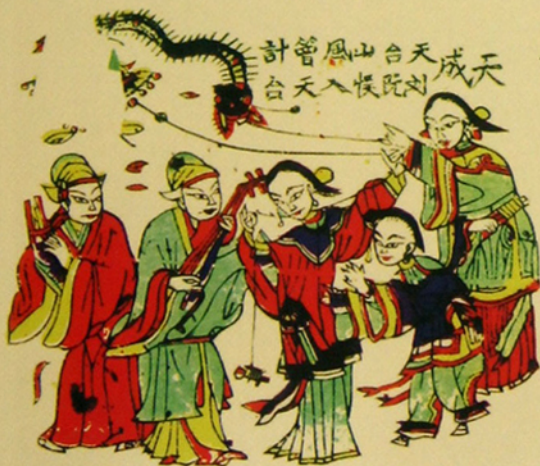 天成
天台山風曾計
刘阮悮入天台